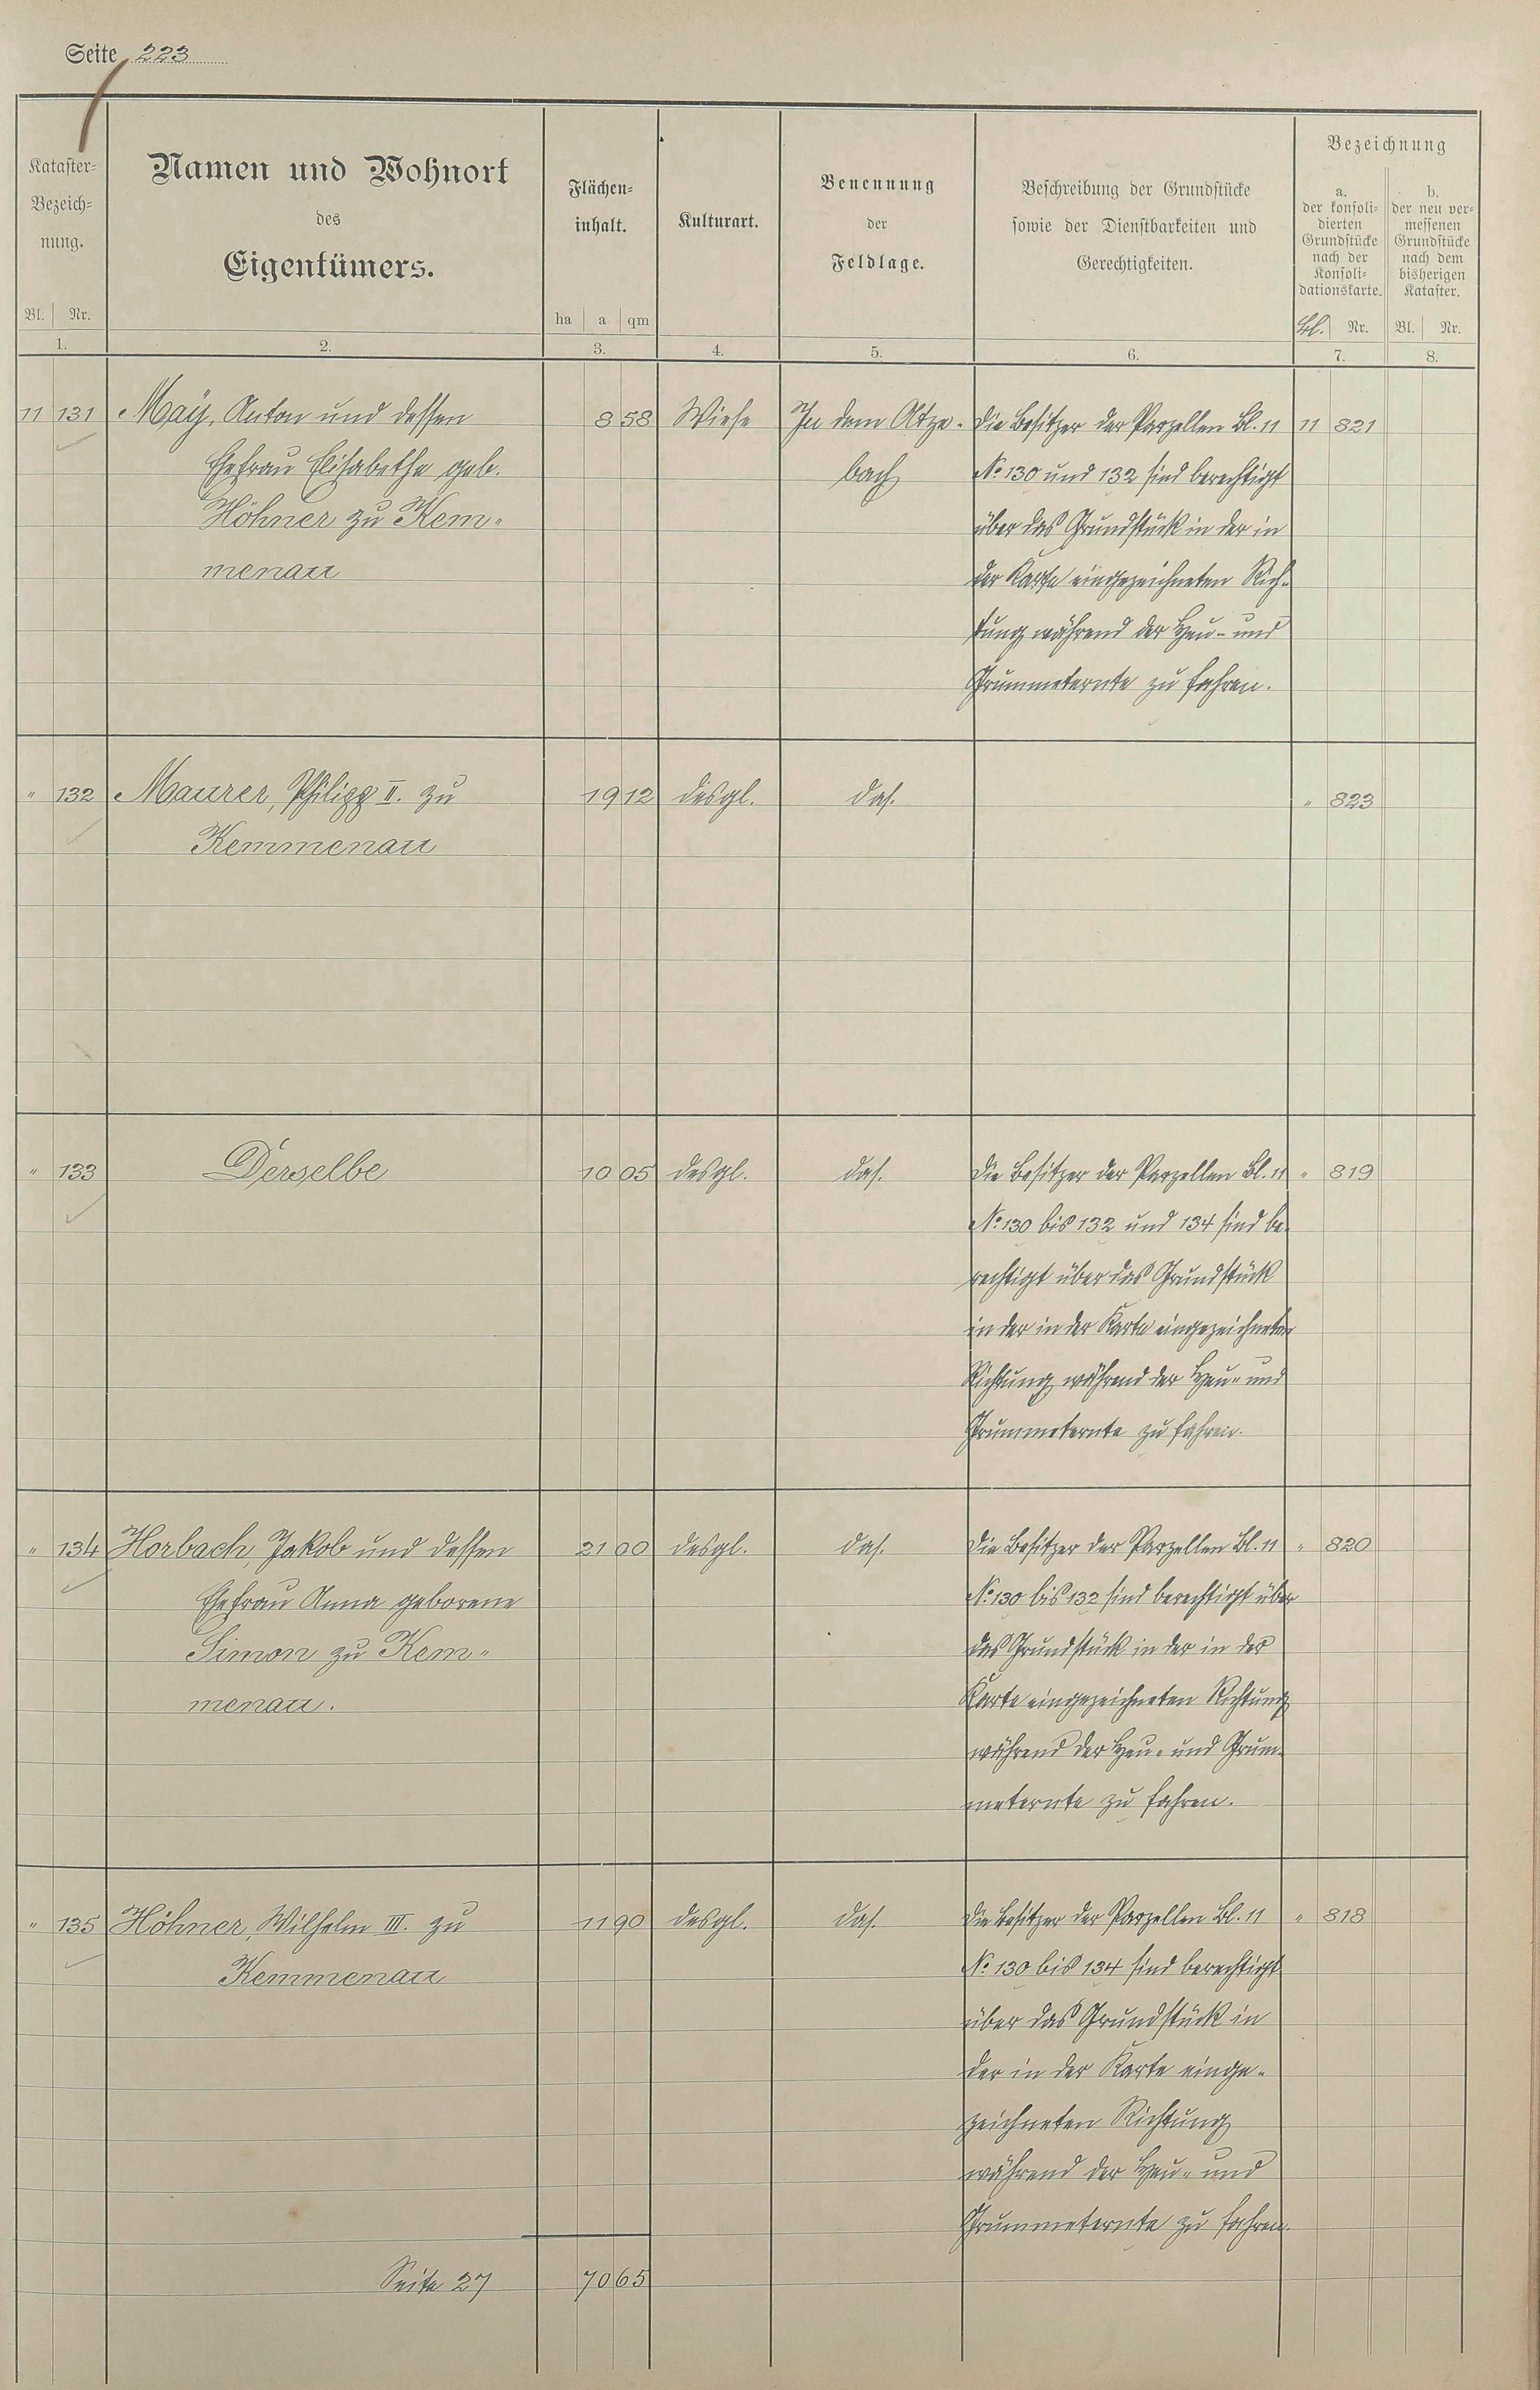 Seite 223
Kataster-
Bezeich-
nung.
Bl. Nr.
1.
Namen und Wohnort
des
Eigentümers.
2.
Flächen-
inhalt.
ha a qm
3.
Kulturart.
4.
Benennung
der
Feldlage.
5.
Beschreibung der Grundstücke
sowie der Dienstbarkeiten und
Gerechtigkeiten.
6.
Bezeichnung
a.
der konsoli-
dierten
Grundstücke
nach der
Konsoli-
dationskarte.
Bl. Nr.
7.
b.
der neu ver-
messenen
Grundstücke
nach dem
bisherigen
Kataster.
Bl. Nr.
8.
11 131 Maÿ, Anton und dessen 8 58 Wiese In dem Atze- Die Besitzer der Parzellen Bl. 11 11 821
Ehefrau Elisabethe geb. bach No 130 und 132 sind berechtigt
Höhner zu Kem- über das Grundstück in der in
menau der Karte eingezeichneten Rich-
tung während der Heu- und
Grummeternte zu fahren.
" 132 Maurer, Philipp II. zu 19 12 desgl. das. " 823
Kemmenau
" 133 Derselbe 10 05 desgl. das. Die Besitzer der Parzellen Bl. 11 " 819
No 130 bis 132 und 134 sind be-
rechtigt über das Grundstück
in der in der Karte eingezeichneten
Richtung während der Heu- und
Grummeternte zu fahren.
" 134 Horbach, Jakob und dessen 21 00 desgl. das. Die Besitzer der Parzellen Bl. 11 " 820
Ehefrau Anna geborene No 130 bis 132 sind berechtigt über
Simon zu Kem- das Grundstück in der in der
menau. Karte eingezeichneten Richtung
während der Heu- und Grum-
meternte zu fahren.
" 135 Höhner, Wilhelm III. zu 11 90 desgl. das. Die Besitzer der Parzellen Bl. 11 " 818
Kemmenau No 130 bis 134 sind berechtigt
über das Grundstück in
der in der Karte einge-
zeichneten Richtung
während der Heu- und
Grummeternte zu fahren.
Seite 27 70 65